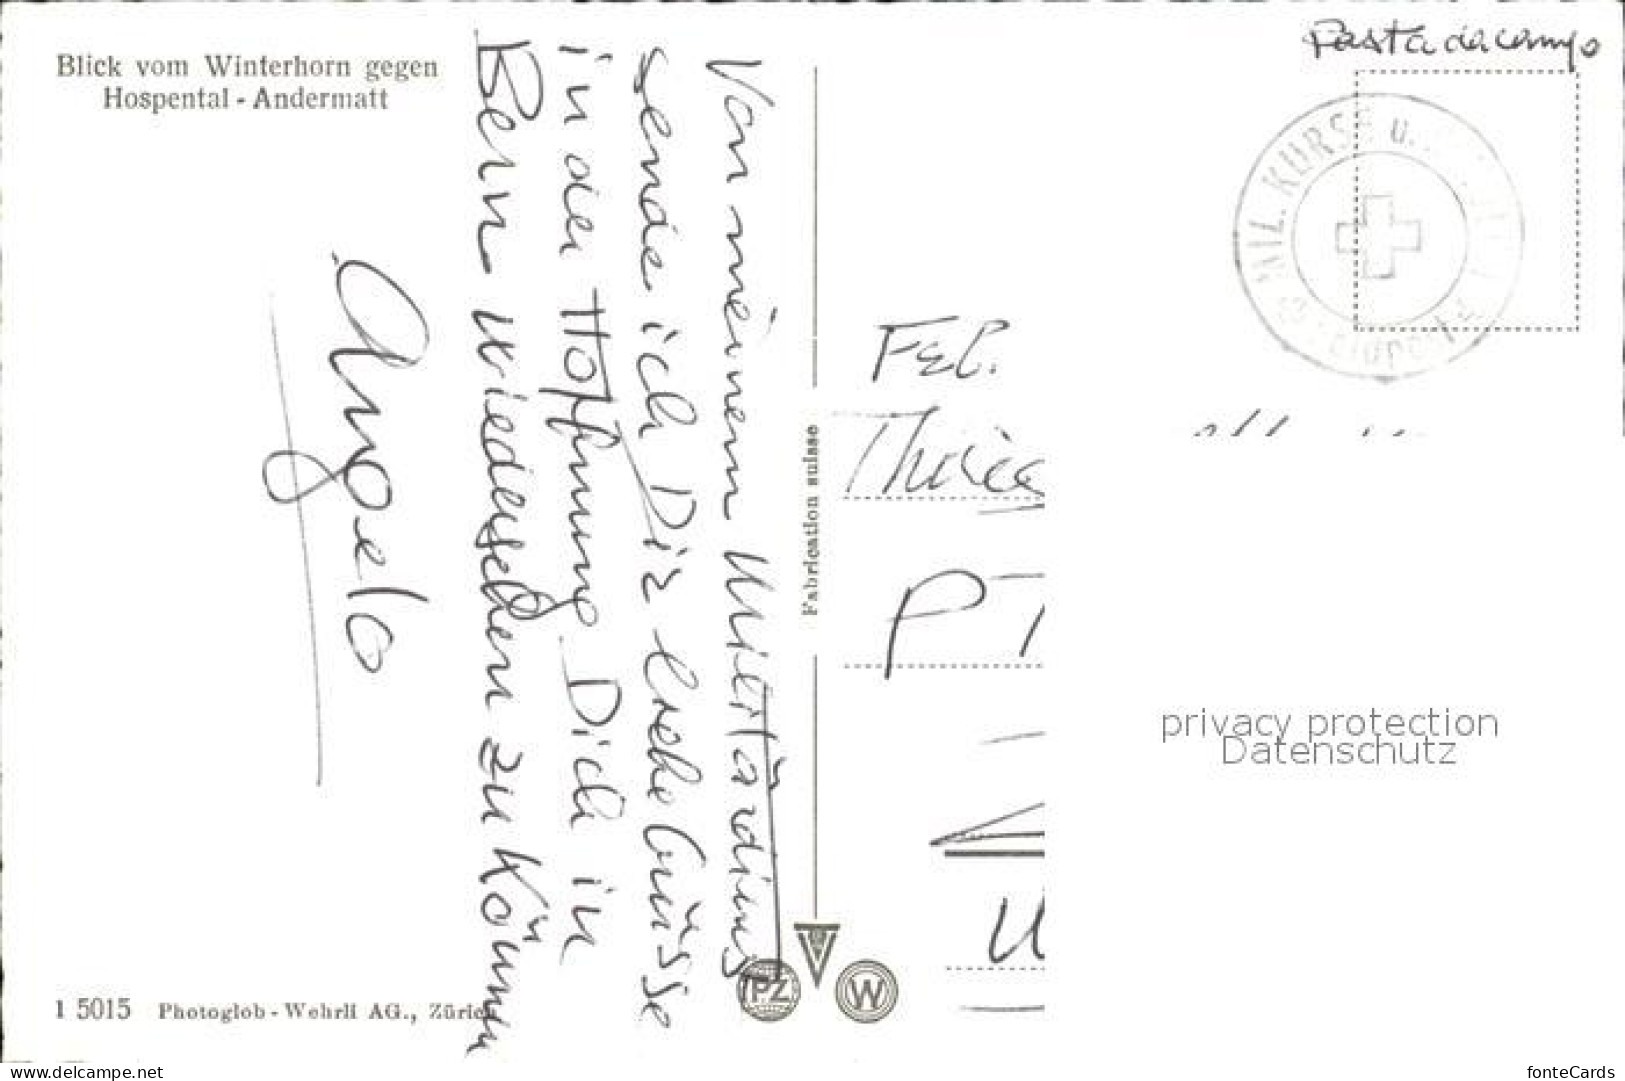 Blick vom Winterhorn gegen
Hospental - Andermatt
Von meinem Militärdienst
sende ich Dir liebe Grüsse
in der Hoffnung Dich in
Bern wiedersehen zu können
Angelo
Fabrication suisse
1 5015 Photoglob - Wehrli AG., Zürich
PZ
W
Posta da campo
MIL. KURSE u.
Feldpost
Frl.
P
U
privacy protection
Datenschutz
www.delcampe.net
fonteCards